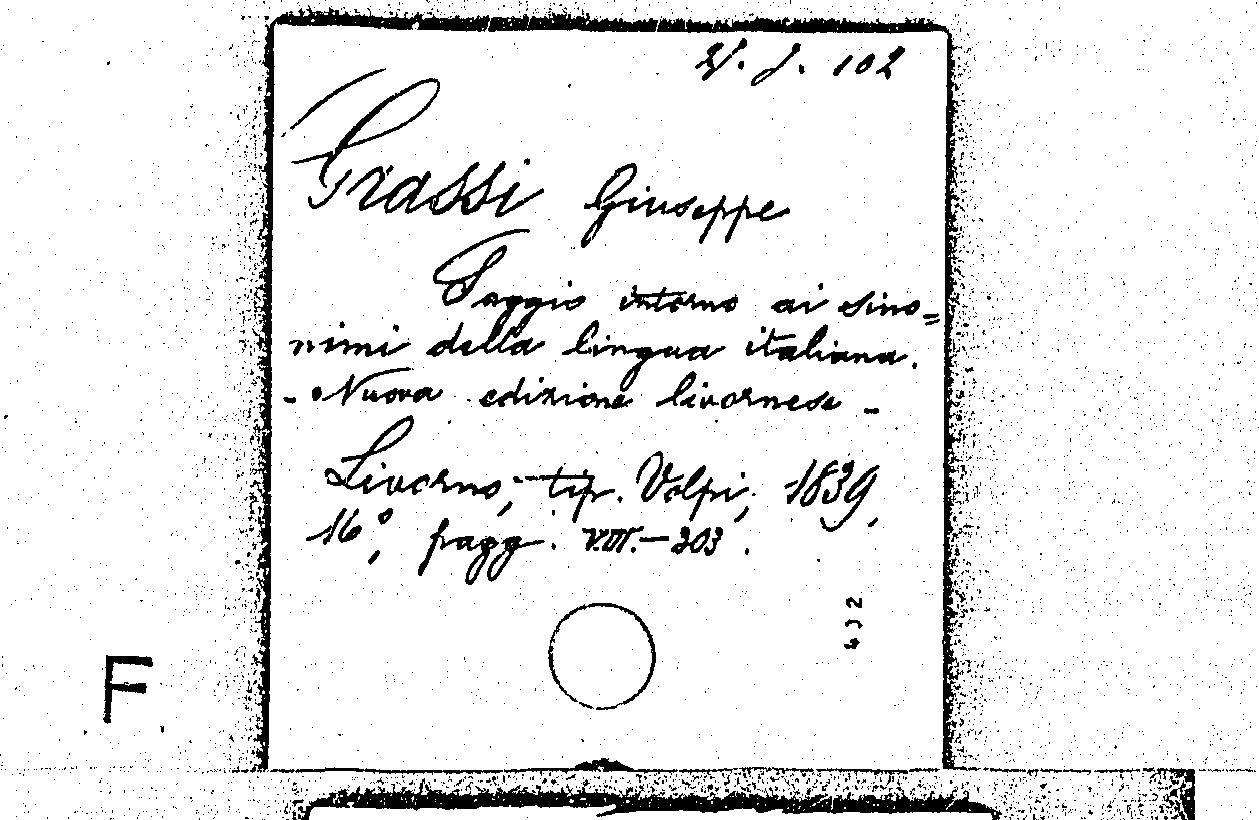 102
Grassi Giuseppe
Saggio intorno ai sino=
nimi della lingua italiana.
- Nuova edizione livornese -
Livorno, tip. Volpi, 1839,
16°, pagg. VIII.-203.
F